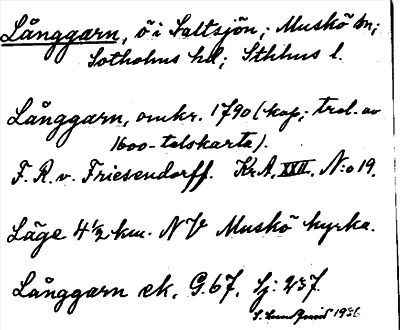 Långgarn, ö i Saltsjön; Muskö sn;
Sotholms hd; Sthlms l.
Långgarn, omkr. 1790 (kop; trol. av
1600-talskarta).
F. R. v. Friesendorff. Kr.A. XXII. N:o 19.
Läge 4½ km. NV Muskö kyrka.
Långgarn ek. G.67. Sj: 237.
1936